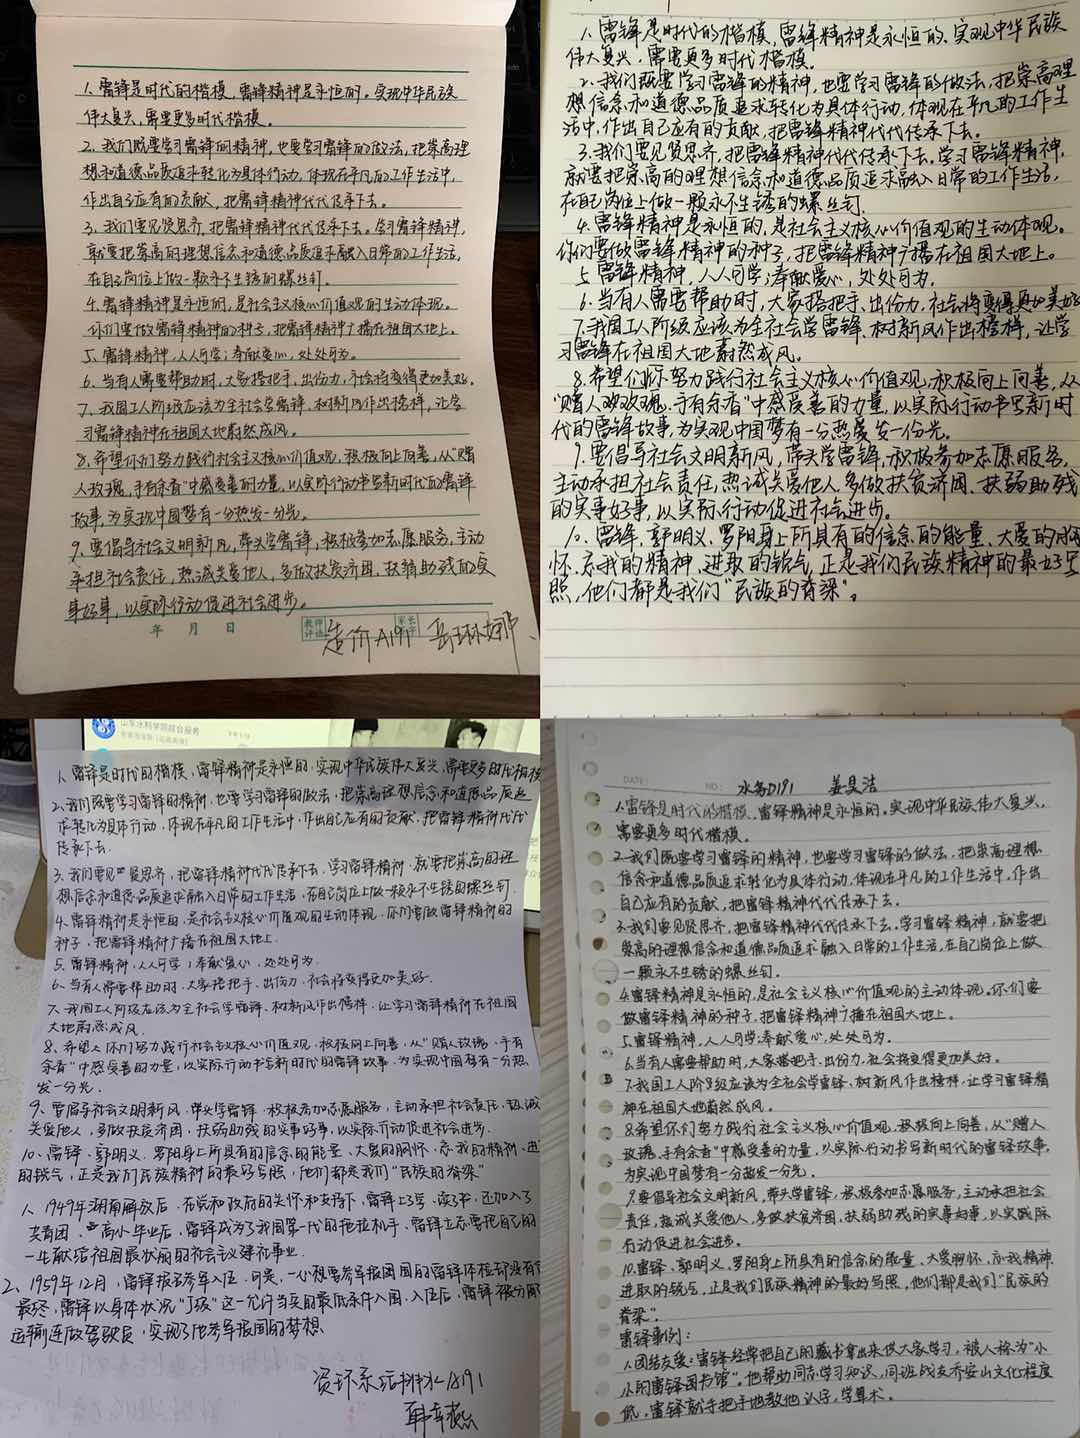 1、雷锋是时代的楷模，雷锋精神是永恒的。实现中华民族
伟大复兴，需要更多时代楷模。
2、我们既要学习雷锋的精神，也要学习雷锋的做法，把崇高理
想和道德品质追求转化为具体行动，体现在平凡的工作生活中，
作出自己应有的贡献，把雷锋精神代代传承下去。
3、我们要见贤思齐，把雷锋精神代代传承下去。学习雷锋精神，
就要把崇高的理想信念和道德品质追求融入日常的工作生活，
在自己岗位上做一颗永不生锈的螺丝钉。
4、雷锋精神是永恒的，是社会主义核心价值观的生动体现。
你们要做雷锋精神的种子，把雷锋精神广播在祖国大地上。
5、雷锋精神，人人可学；奉献爱心，处处可为。
6、当有人需要帮助时，大家搭把手、出份力，社会将变得更加美好。
7、我国工人阶级应该为全社会学雷锋、树新风作出榜样，让学
习雷锋精神在祖国大地蔚然成风。
8、希望你们努力践行社会主义核心价值观，积极向上向善，从“赠
人玫瑰，手有余香”中感受善的力量，以实际行动书写新时代的雷锋
故事，为实现中国梦有一分热发一分光。
9、要倡导社会文明新风，带头学雷锋，积极参加志愿服务，主动
承担社会责任，热诚关爱他人，多做扶贫济困、扶弱助残的实
事好事，以实际行动促进社会进步。
年 月 日
教师评语
家长签字
造价A191 岳琳娜
1、雷锋是时代的楷模，雷锋精神是永恒的、实现中华民族
伟大复兴，需要更多时代楷模。
2、我们既要学习雷锋的精神，也要学习雷锋的做法，把崇高理
想信念和道德品质追求转化为具体行动，体现在平凡的工作生
活中，作出自己应有的贡献，把雷锋精神代代传承下去。
3、我们要见贤思齐，把雷锋精神代代传承下去。学习雷锋精神，
就要把崇高的理想信念和道德品质追求融入日常的工作生活，
在自己岗位上做一颗永不生锈的螺丝钉。
4、雷锋精神是永恒的，是社会主义核心价值观的生动体现。
你们要做雷锋精神的种子，把雷锋精神广播在祖国大地上。
5、雷锋精神，人人可学；奉献爱心，处处可为。
6、当有人需要帮助时，大家搭把手、出份力，社会将变得更加美好
7、我国工人阶级应该为全社会学雷锋、树新风作出榜样，让学
习雷锋在祖国大地蔚然成风。
8、希望你们努力践行社会主义核心价值观，积极向上向善，从
“赠人玫瑰、手有余香”中感受善的力量，以实际行动书写新时
代的雷锋故事，为实现中国梦有一分热发一份光。
9、要倡导社会文明新风，带头学雷锋，积极参加志愿服务，
主动承担社会责任，热诚关爱他人，多做扶贫济困、扶弱助残
的实事好事，以实际行动促进社会进步。
10、雷锋、郭明义、罗阳身上所具有的信念的能量、大爱的胸
怀、忘我的精神、进取的锐气，正是我们民族精神的最好写
照，他们都是我们“民族的脊梁”。
山东水利学院综合服务
1、雷锋是时代的楷模，雷锋精神是永恒的，实现中华民族伟大复兴，需要更多时代楷模
2、我们既要学习雷锋的精神，也要学习雷锋的做法，把崇高理想信念和道德品质追
求转化为具体行动，体现在平凡的工作生活中，作出自己应有的贡献，把雷锋精神代代
传承下去。
3、我们要见贤思齐，把雷锋精神代代传承下去，学习雷锋精神，就要把崇高的理
想信念和道德品质追求融入日常的工作生活，在自己岗位上做一颗永不生锈的螺丝钉
4、雷锋精神是永恒的，是社会主义核心价值观的生动体现，你们要做雷锋精神的
种子，把雷锋精神广播在祖国大地上。
5、雷锋精神，人人可学；奉献爱心，处处可为。
6、当有人需要帮助时，大家搭把手、出份力，社会将变得更加美好。
7、我国工人阶级应该为全社会学雷锋、树新风作出榜样，让学习雷锋精神在祖国
大地蔚然成风。
8、希望你们努力践行社会主义核心价值观，积极向上向善，从“赠人玫瑰，手有
余香”中感受善的力量，以实际行动书写新时代的雷锋故事，为实现中国梦有一分热
发一分光。
9、要倡导社会文明新风，带头学雷锋，积极参加志愿服务，主动承担社会责任，热诚
关爱他人，多做扶贫济困、扶弱助残的实事好事，以实际行动促进社会进步。
10、雷锋、郭明义、罗阳身上所具有的信念的能量、大爱的胸怀、忘我的精神、进
的锐气，正是我们民族精神的最好写照，他们都是我们“民族的脊梁”
1、1949年湖南解放后，在党和政府的关怀和支持下，雷锋上了学，读了书，还加入了
共青团，高小毕业后，雷锋成为了我国第一代的拖拉机手，雷锋立志要把自己的
一生献给祖国最壮丽的社会主义建设事业。
2、1959年12月，雷锋报名参军入伍，可是，一心想要参军报国的雷锋体检却没有
最终，雷锋以身体状况“J级”这一允许当兵的最低条件入围，入伍后，雷锋被分配
运输连做驾驶员，实现了他参军报国的梦想。
资环系给排水A191
韩幸燕
DATE: NO: 水务D191 姜昊洁
1、雷锋是时代的楷模，雷锋精神是永恒的，实现中华民族伟大复兴，
需要更多时代楷模。
2、我们既要学习雷锋的精神，也要学习雷锋的做法，把崇高理想
信念和道德品质追求转化为具体行动，体现在平凡的工作生活中，作出
自己应有的贡献，把雷锋精神代代传承下去。
3、我们要见贤思齐，把雷锋精神代代传承下去，学习雷锋精神，就要把
崇高的理想信念和道德品质追求融入日常的工作生活，在自己岗位上做
一颗永不生锈的螺丝钉。
4、雷锋精神是永恒的，是社会主义核心价值观的生动体现。你们要
做雷锋精神的种子，把雷锋精神广播在祖国大地上。
5、雷锋精神，人人可学；奉献爱心，处处可为。
6、当有人需要帮助时，大家搭把手、出份力，社会将变得更加美好。
7、我国工人阶级应该为全社会学雷锋，树新风作出榜样，让学习雷锋精
神在祖国大地蔚然成风。
8、希望你们努力践行社会主义核心价值观，积极向上向善，从“赠人
玫瑰，手有余香”中感受善的力量，以实际行动书写新时代的雷锋故事，
为实现中国梦有一分热发一分光。
9、要倡导社会文明新风，带头学雷锋，积极参加志愿服务，主动承担社会
责任，热诚关爱他人，多做扶贫济困、扶弱助残的实事好事，以实际
行动促进社会进步。
10、雷锋、郭明义、罗阳身上所具有的信念的能量、大爱胸怀、忘我精神、
进取的锐气，正是我们民族精神的最好写照，他们都是我们“民族的
脊梁”。
雷锋事例：
1、团结友爱：雷锋经常把自己的藏书拿出来供大家学习，被人称为“小
小的雷锋图书馆”。他帮助同志学习知识，同班战友乔安山文化程度
低，雷锋就手把手地教他认字，学算术。